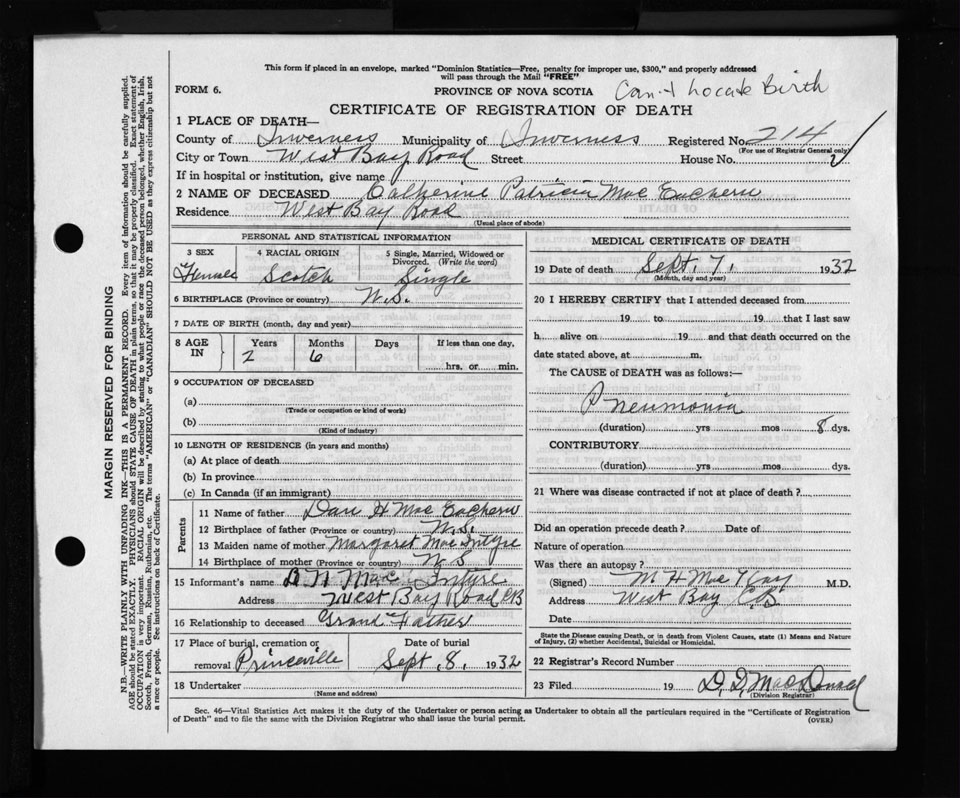 This form if placed in an envelope, marked "Dominion Statistics—Free, penalty for improper use, $300," and properly addressed
will pass through the Mail "FREE"
FORM 6.
PROVINCE OF NOVA SCOTIA
Can't Locate Birth
CERTIFICATE OF REGISTRATION OF DEATH
1 PLACE OF DEATH—
County of Inverness Municipality of Inverness Registered No. 214
(For use of Registrar General only)
City or Town West Bay Road Street House No.
If in hospital or institution, give name
2 NAME OF DECEASED Catherine Patricia Mac Eachern
Residence West Bay Road
(Usual place of abode)
PERSONAL AND STATISTICAL INFORMATION
3 SEX 4 RACIAL ORIGIN 5 Single, Married, Widowed or Divorced. (Write the word)
Female Scotch Single
6 BIRTHPLACE (Province or country) N.S.
7 DATE OF BIRTH (month, day and year)
8 AGE IN Years Months Days If less than one day,
2 6 hrs. or min.
9 OCCUPATION OF DECEASED
(a)
(Trade or occupation or kind of work)
(b)
(Kind of industry)
10 LENGTH OF RESIDENCE (in years and months)
(a) At place of death
(b) In province
(c) In Canada (if an immigrant)
Parents
11 Name of father Dan H Mac Eachern
12 Birthplace of father (Province or country) N.S.
13 Maiden name of mother Margaret Mac Intyre
14 Birthplace of mother (Province or country) N S
15 Informant's name D N Mac Intyre
Address West Bay Road CB
16 Relationship to deceased Grand Father
17 Place of burial, cremation or removal Princeville
Date of burial Sept. 8. 1932
18 Undertaker
(Name and address)
MEDICAL CERTIFICATE OF DEATH
19 Date of death Sept. 7. 1932
(Month, day and year)
20 I HEREBY CERTIFY that I attended deceased from
19 to 19 that I last saw
h alive on 19 and that death occurred on the
date stated above, at m.
The CAUSE of DEATH was as follows:—
Pneumonia
(duration) yrs mos 8 dys.
CONTRIBUTORY
(duration) yrs mos dys.
21 Where was disease contracted if not at place of death?
Did an operation precede death? Date of
Nature of operation
Was there an autopsy?
(Signed) M H Mac Kay M.D.
Address West Bay C.B.
Date
State the Disease causing Death, or in death from Violent Causes, state (1) Means and Nature
of Injury, (2) whether Accidental, Suicidal or Homicidal.
22 Registrar's Record Number
23 Filed 19 D. D. MacDonald
(Division Registrar)
Sec. 46—Vital Statistics Act makes it the duty of the Undertaker or person acting as Undertaker to obtain all the particulars required in the "Certificate of Registration
of Death" and to file the same with the Division Registrar who shall issue the burial permit.
(OVER)
MARGIN RESERVED FOR BINDING
N.B.—WRITE PLAINLY WITH UNFADING INK—THIS IS A PERMANENT RECORD. Every item of information should be carefully supplied.
AGE should be stated EXACTLY. PHYSICIANS should STATE CAUSE OF DEATH in plain terms, so that it may be properly classified. Exact statement of
OCCUPATION is very important. RACIAL ORIGIN will be described by stating to what people or race the deceased person belonged, whether English, Irish,
Scotch, French, German, Russian, Ruthenian, etc. The terms "AMERICAN" or "CANADIAN" SHOULD NOT BE USED as they express citizenship but not
a race or people. See instructions on back of Certificate.